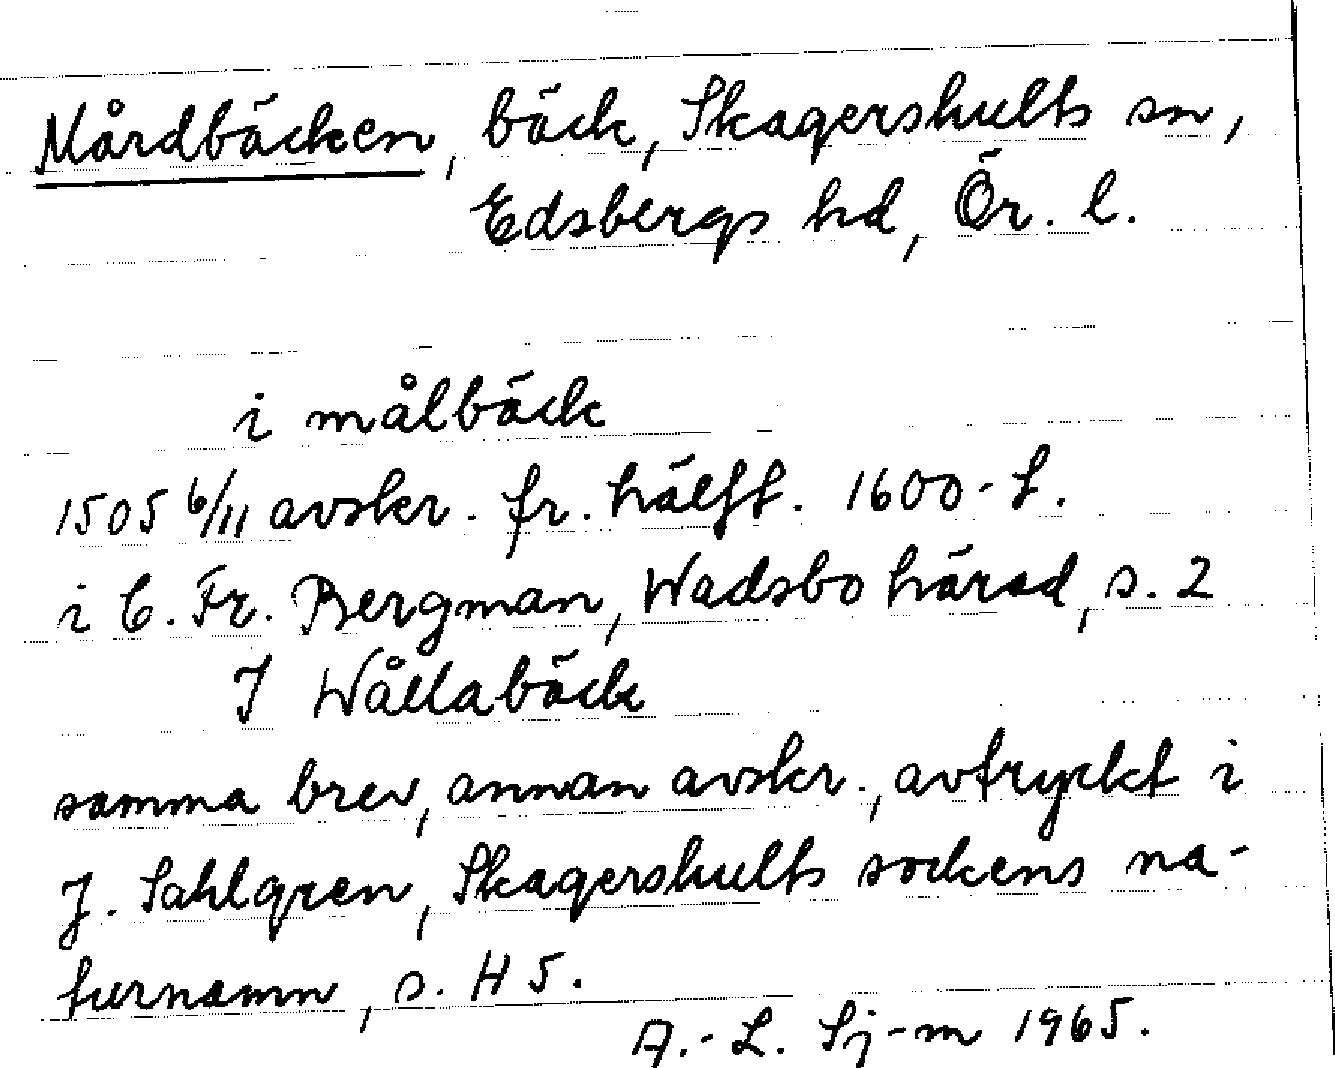 Mårdbäcken, bäck, Skagershults sn,
Edsbergs hd, Ör. l.
i målbäck
1505 6/11 avskr. fr. hälft. 1600-t.
i C. Fr. Bergman, Wadsbo härad, s. 2
I Wållabäck
samma brev, annan avskr., avtryckt i
J. Sahlgren, Skagershults sockens na-
turnamn, s. H 5.
A.-L. Sj-m 1965.